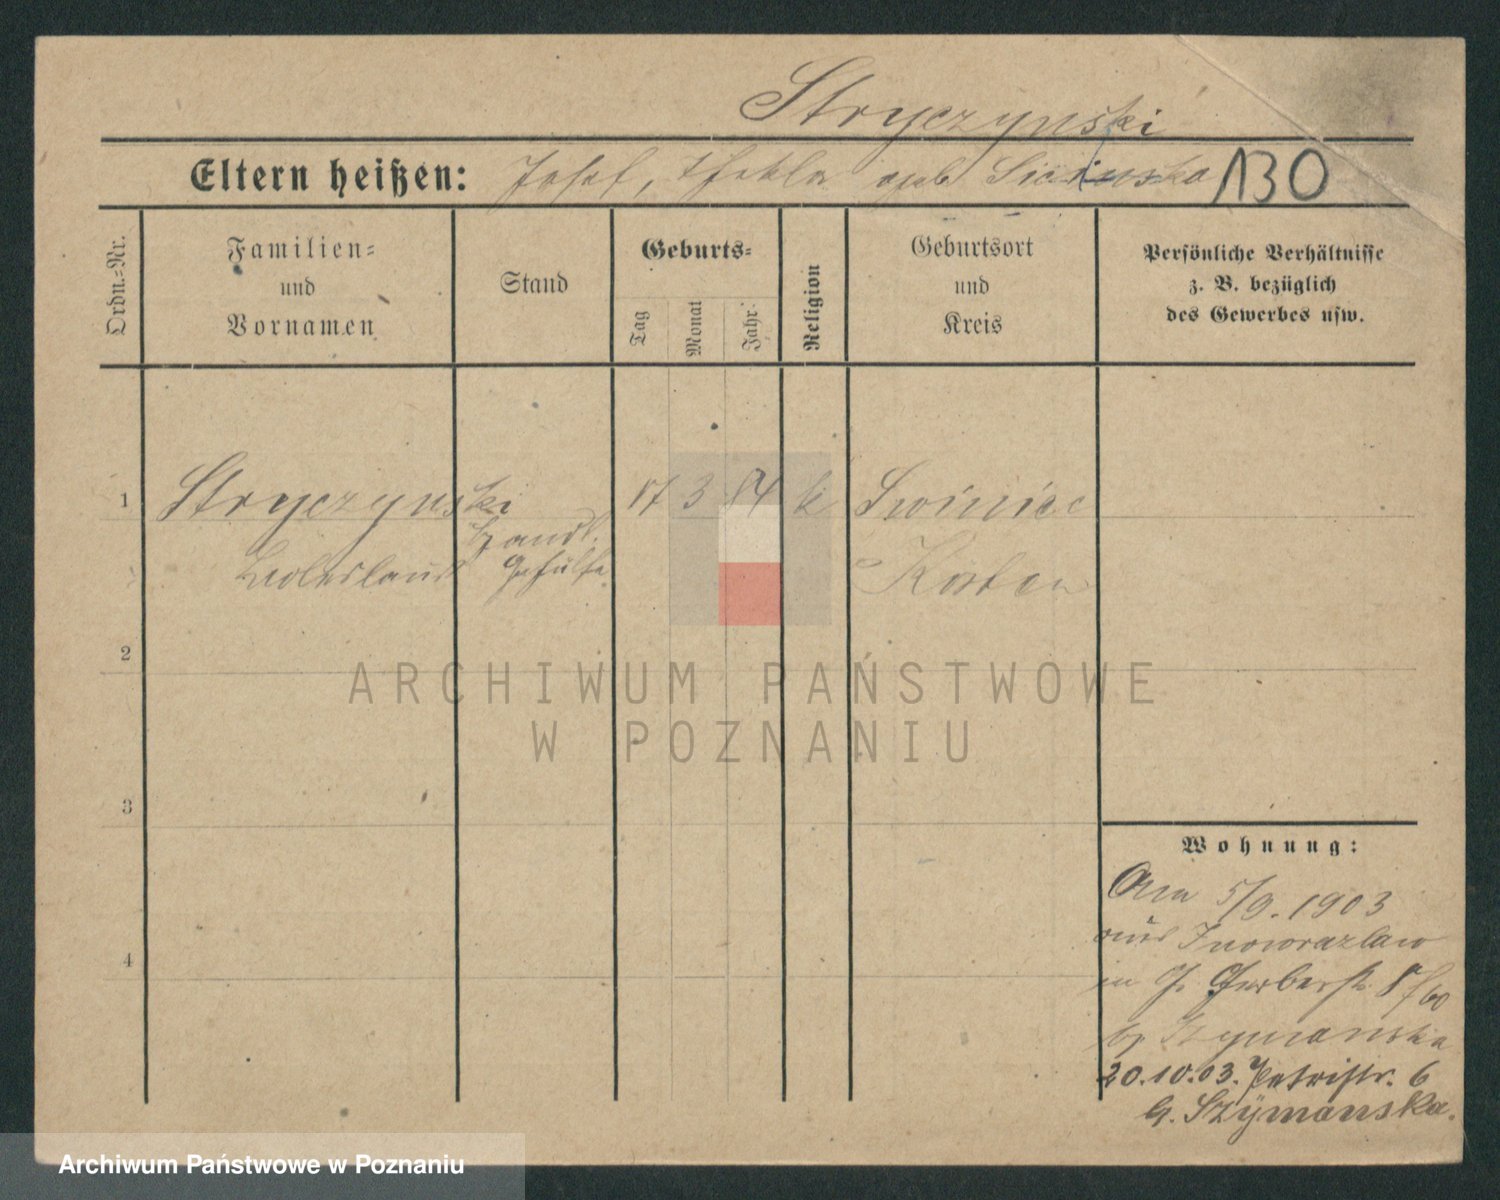 Stryczynski
Eltern heißen: Josef, Thekla geb 130
Ordn.=Nr.
Familien=
und
Vornamen
Stand
Geburts=
Tag
Monat
Jahr
Religion
Geburtsort
und
Kreis
Persönliche Verhältnisse
z. B. bezüglich
des Gewerbes usw.
1 Stryczynski 17 3 84 k Swiniec
Boleslaus Handl. Gehülfe Kosten
2
3
4
ARCHIWUM PAŃSTWOWE
W POZNANIU
Wohnung:
Am 5/9. 1903
aus Inowrazlaw
in P. Gerberstr.
b/ Szymanska
20.10.03. Petristr. 6
b. Szymanska.
Archiwum Państwowe w Poznaniu